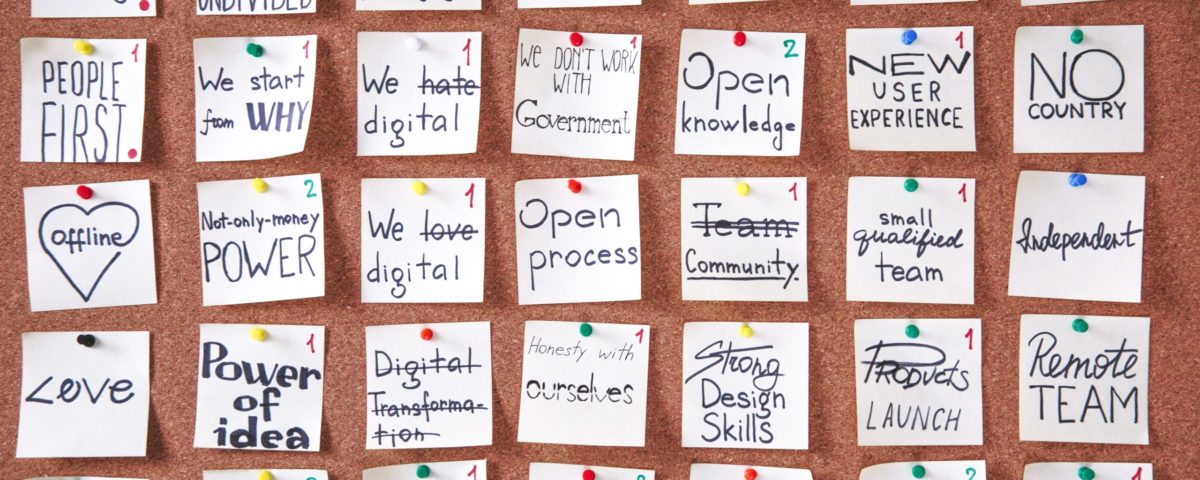 UNDIVIDED
PEOPLE
FIRST
1
We start
from WHY
1
We hate
digital
1
We DON'T WORK
WITH
Government
1
Open
knowledge
2
NEW
USER
EXPERIENCE
1
NO
COUNTRY
offline
Not-only-money
POWER
2
We love
digital
1
Open
process
Team
Community.
1
small
qualified
team
1
Independent
Love
Power
of
idea
1
Digital
Transforma-
tion
1
Honesty with
ourselves
1
Strong
Design
Skills
Products
LAUNCH
1
Remote
TEAM
1
1
1
2
1